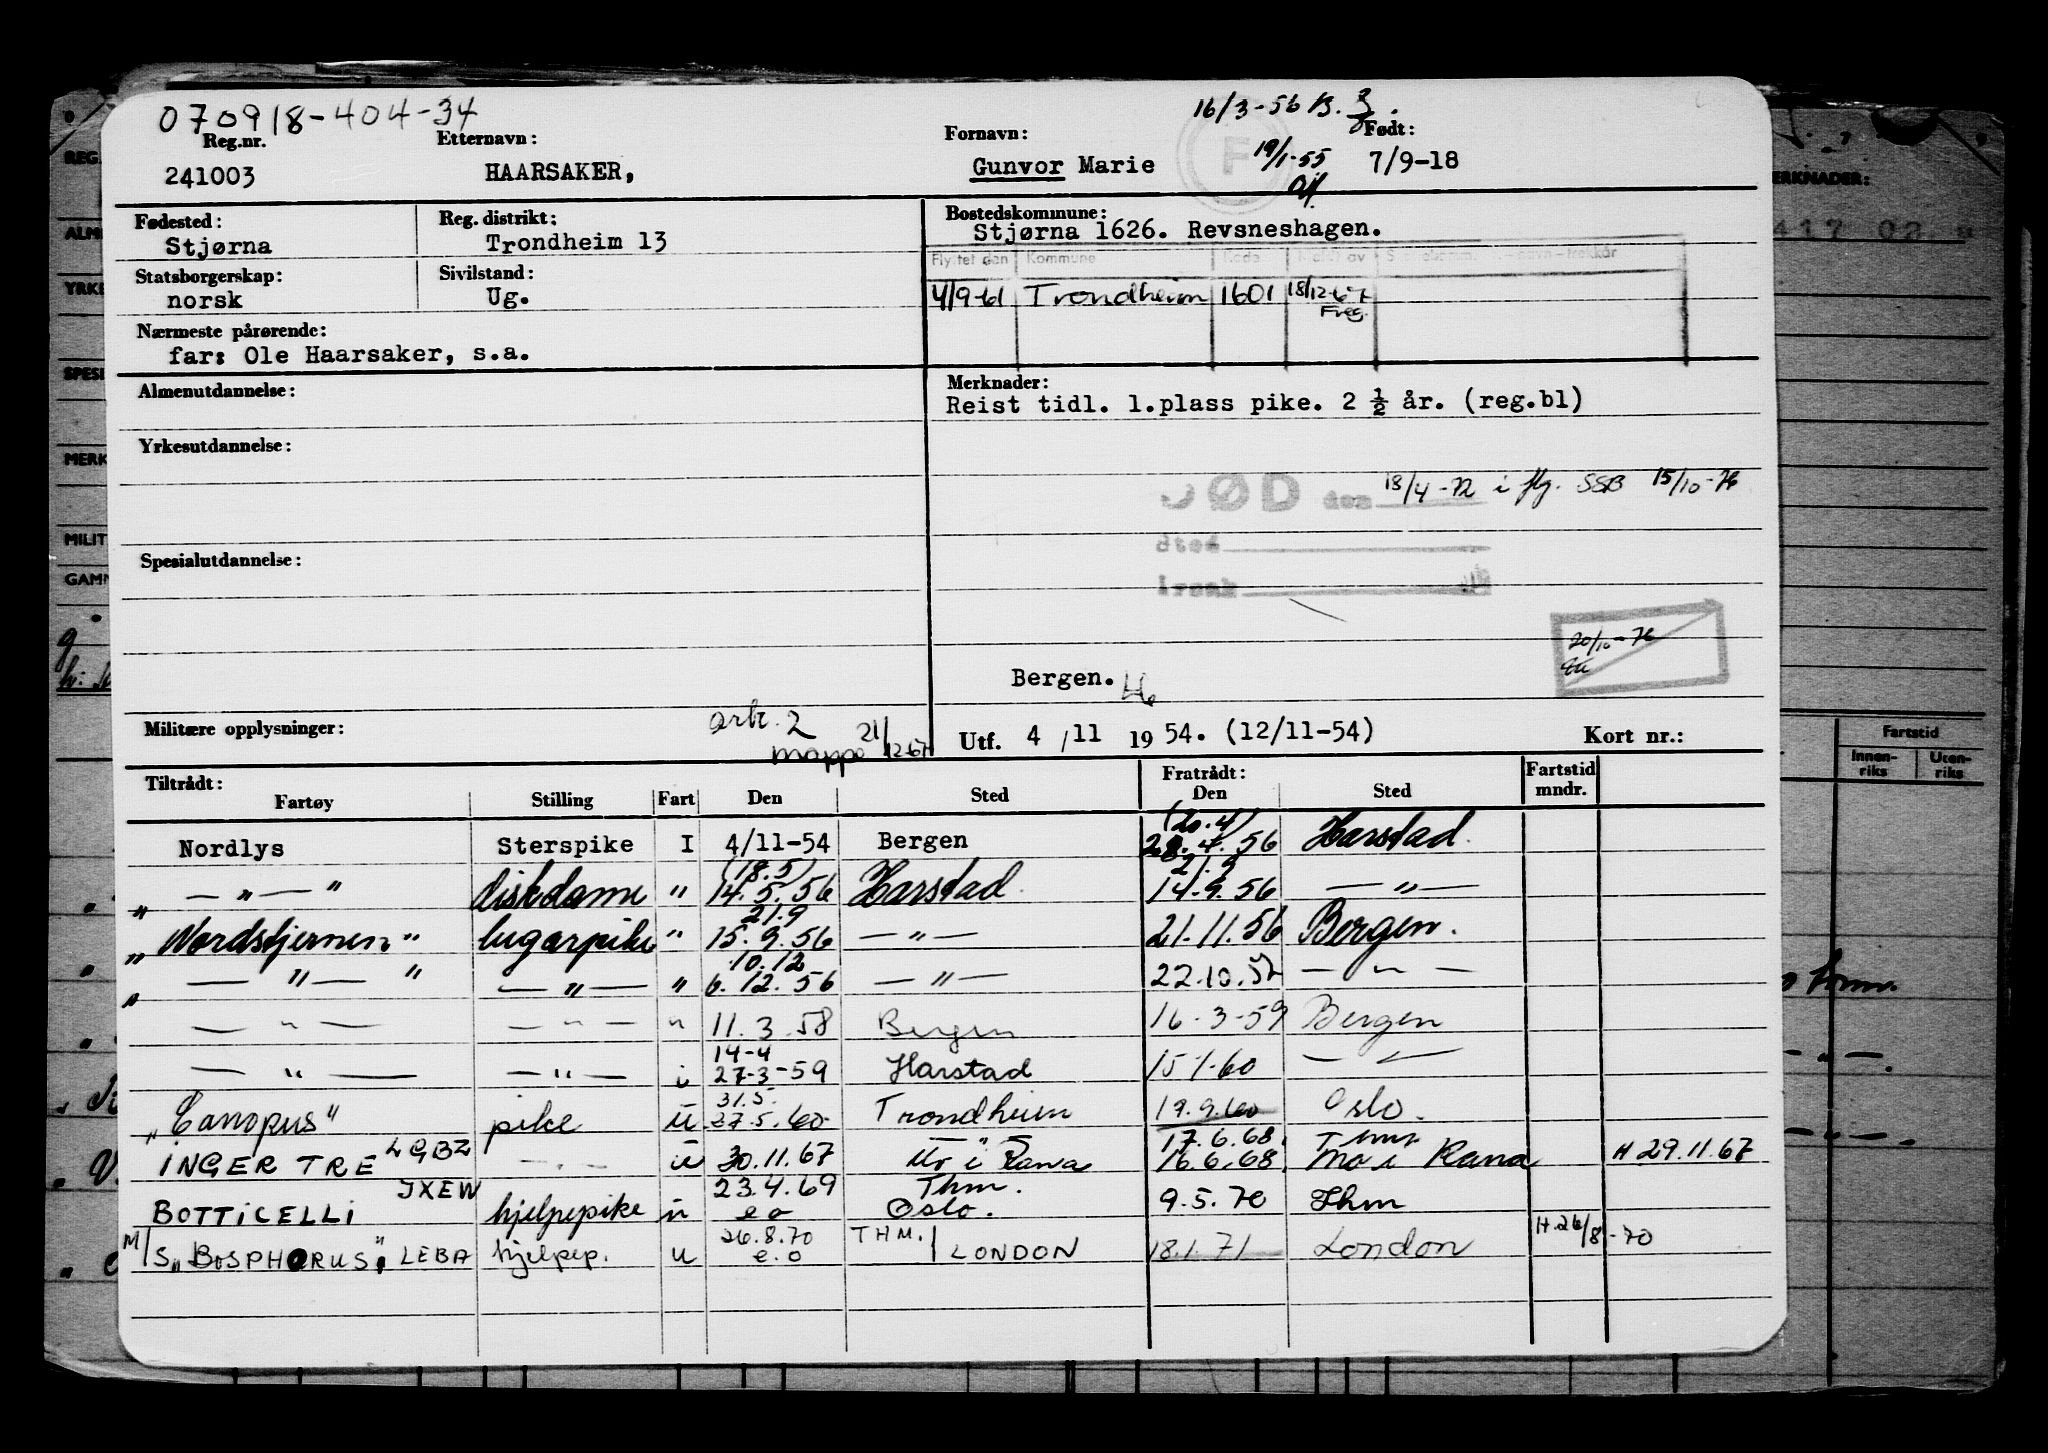 070918-404-34
16/3-56 B.
Reg.nr. Etternavn: Fornavn: Født:
241003 HAARSAKER, Gunvor Marie 19/1-55 7/9-18
Fødested: Reg. distrikt: Bostedskommune:
Stjørna Trondheim 13 Stjørna 1626. Revsneshagen.
Statsborgerskap: Sivilstand: Flyttet den Kommune Kode
norsk Ug. 4/9-61 Trondheim 1601 18/12-67
Freg.
Nærmeste pårørende:
far: Ole Haarsaker, s.a.
Almenutdannelse: Merknader:
Reist tidl. 1.plass pike. 2 ½ år. (reg.bl)
Yrkesutdannelse:
DØD den 18/4-72 i flg. SSB 15/10-76
Spesialutdannelse:
20/10-76
Bergen.
Militære opplysninger: ark. 2 mappe 21/12 67
Utf. 4/11 1954. (12/11-54) Kort nr.:
Tiltrådt: Fratrådt: Fartstid
Fartøy Stilling Fart Den Sted Den Sted mndr.
(20.4)
Nordlys Sterspike I 4/11-54 Bergen 28.4.56 Harstad.
(18.5) 21.9
„ — " — " diskdame " 14.5.56 Harstad. 14.9.56 — " —
21.9
„ Nordstjernen " lugarpike " 15.9.56 — " — 21.11.56 Bergen.
10.12
„ — " — " — " — " 6.12.56 — " — 22.10.57 — " —
— " — — " — " 11.3.58 Bergen 16-3-59 Bergen
14-4
— " — — " — i 27-3-59 Harstad 15 1-60 — " —
31.5.
„Canopus" pike u 27.5.60 Trondheim 19.9.60 Oslo.
17.6.68. Thm
INGER TRE LGBZ — . — u 30.11.67 Mo i Rana 16.6.68 Mo i Rana H 29.11.67
JXEW 23.4.69 Thm.
BOTTICELLI hjelpepike u e o Oslo. 9.5.70 Thm
26.8.70 THM. H.26/8-70
M/S „BOSPHORUS" LEBA hjelpep. u e.o / LONDON 18.1.71 London
REG.
ALM
YRKE
SPESI
MERK
MILIT
GAMM
MERKNADER:
417 02
Fartstid
Innen-riks Uten-riks